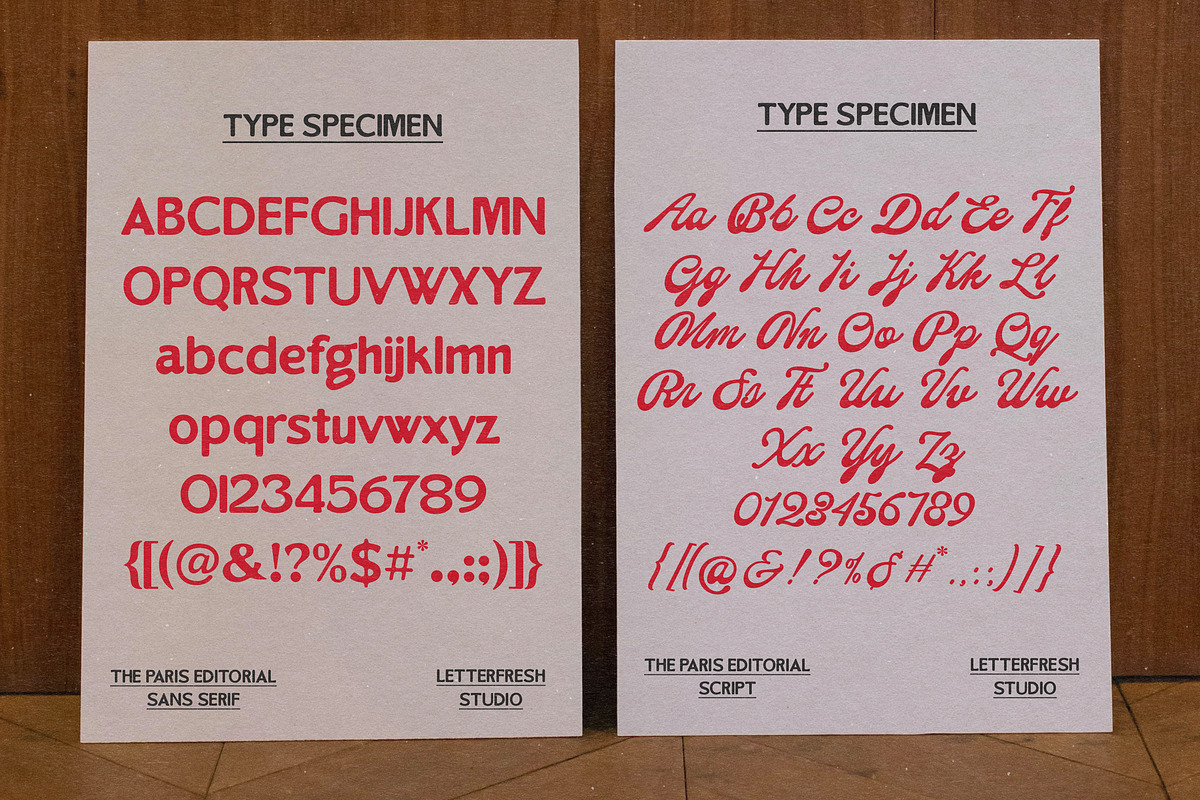 TYPE SPECIMEN
ABCDEFGHIJKLMN
OPQRSTUVWXYZ
abcdefghijklmn
opqrstuvwxyz
0123456789
{[(@&!?%$#*.,:;)]}
THE PARIS EDITORIAL
SANS SERIF
LETTERFRESH
STUDIO
TYPE SPECIMEN
Aa Bb Cc Dd Ee Ff
Gg Hh Ii Jj Kk Ll
Mm Nn Oo Pp Qq
Rr Ss Tt Uu Vv Ww
Xx Yy Zz
0123456789
{[(@&!?%$#*.,:;)]}
THE PARIS EDITORIAL
SCRIPT
LETTERFRESH
STUDIO